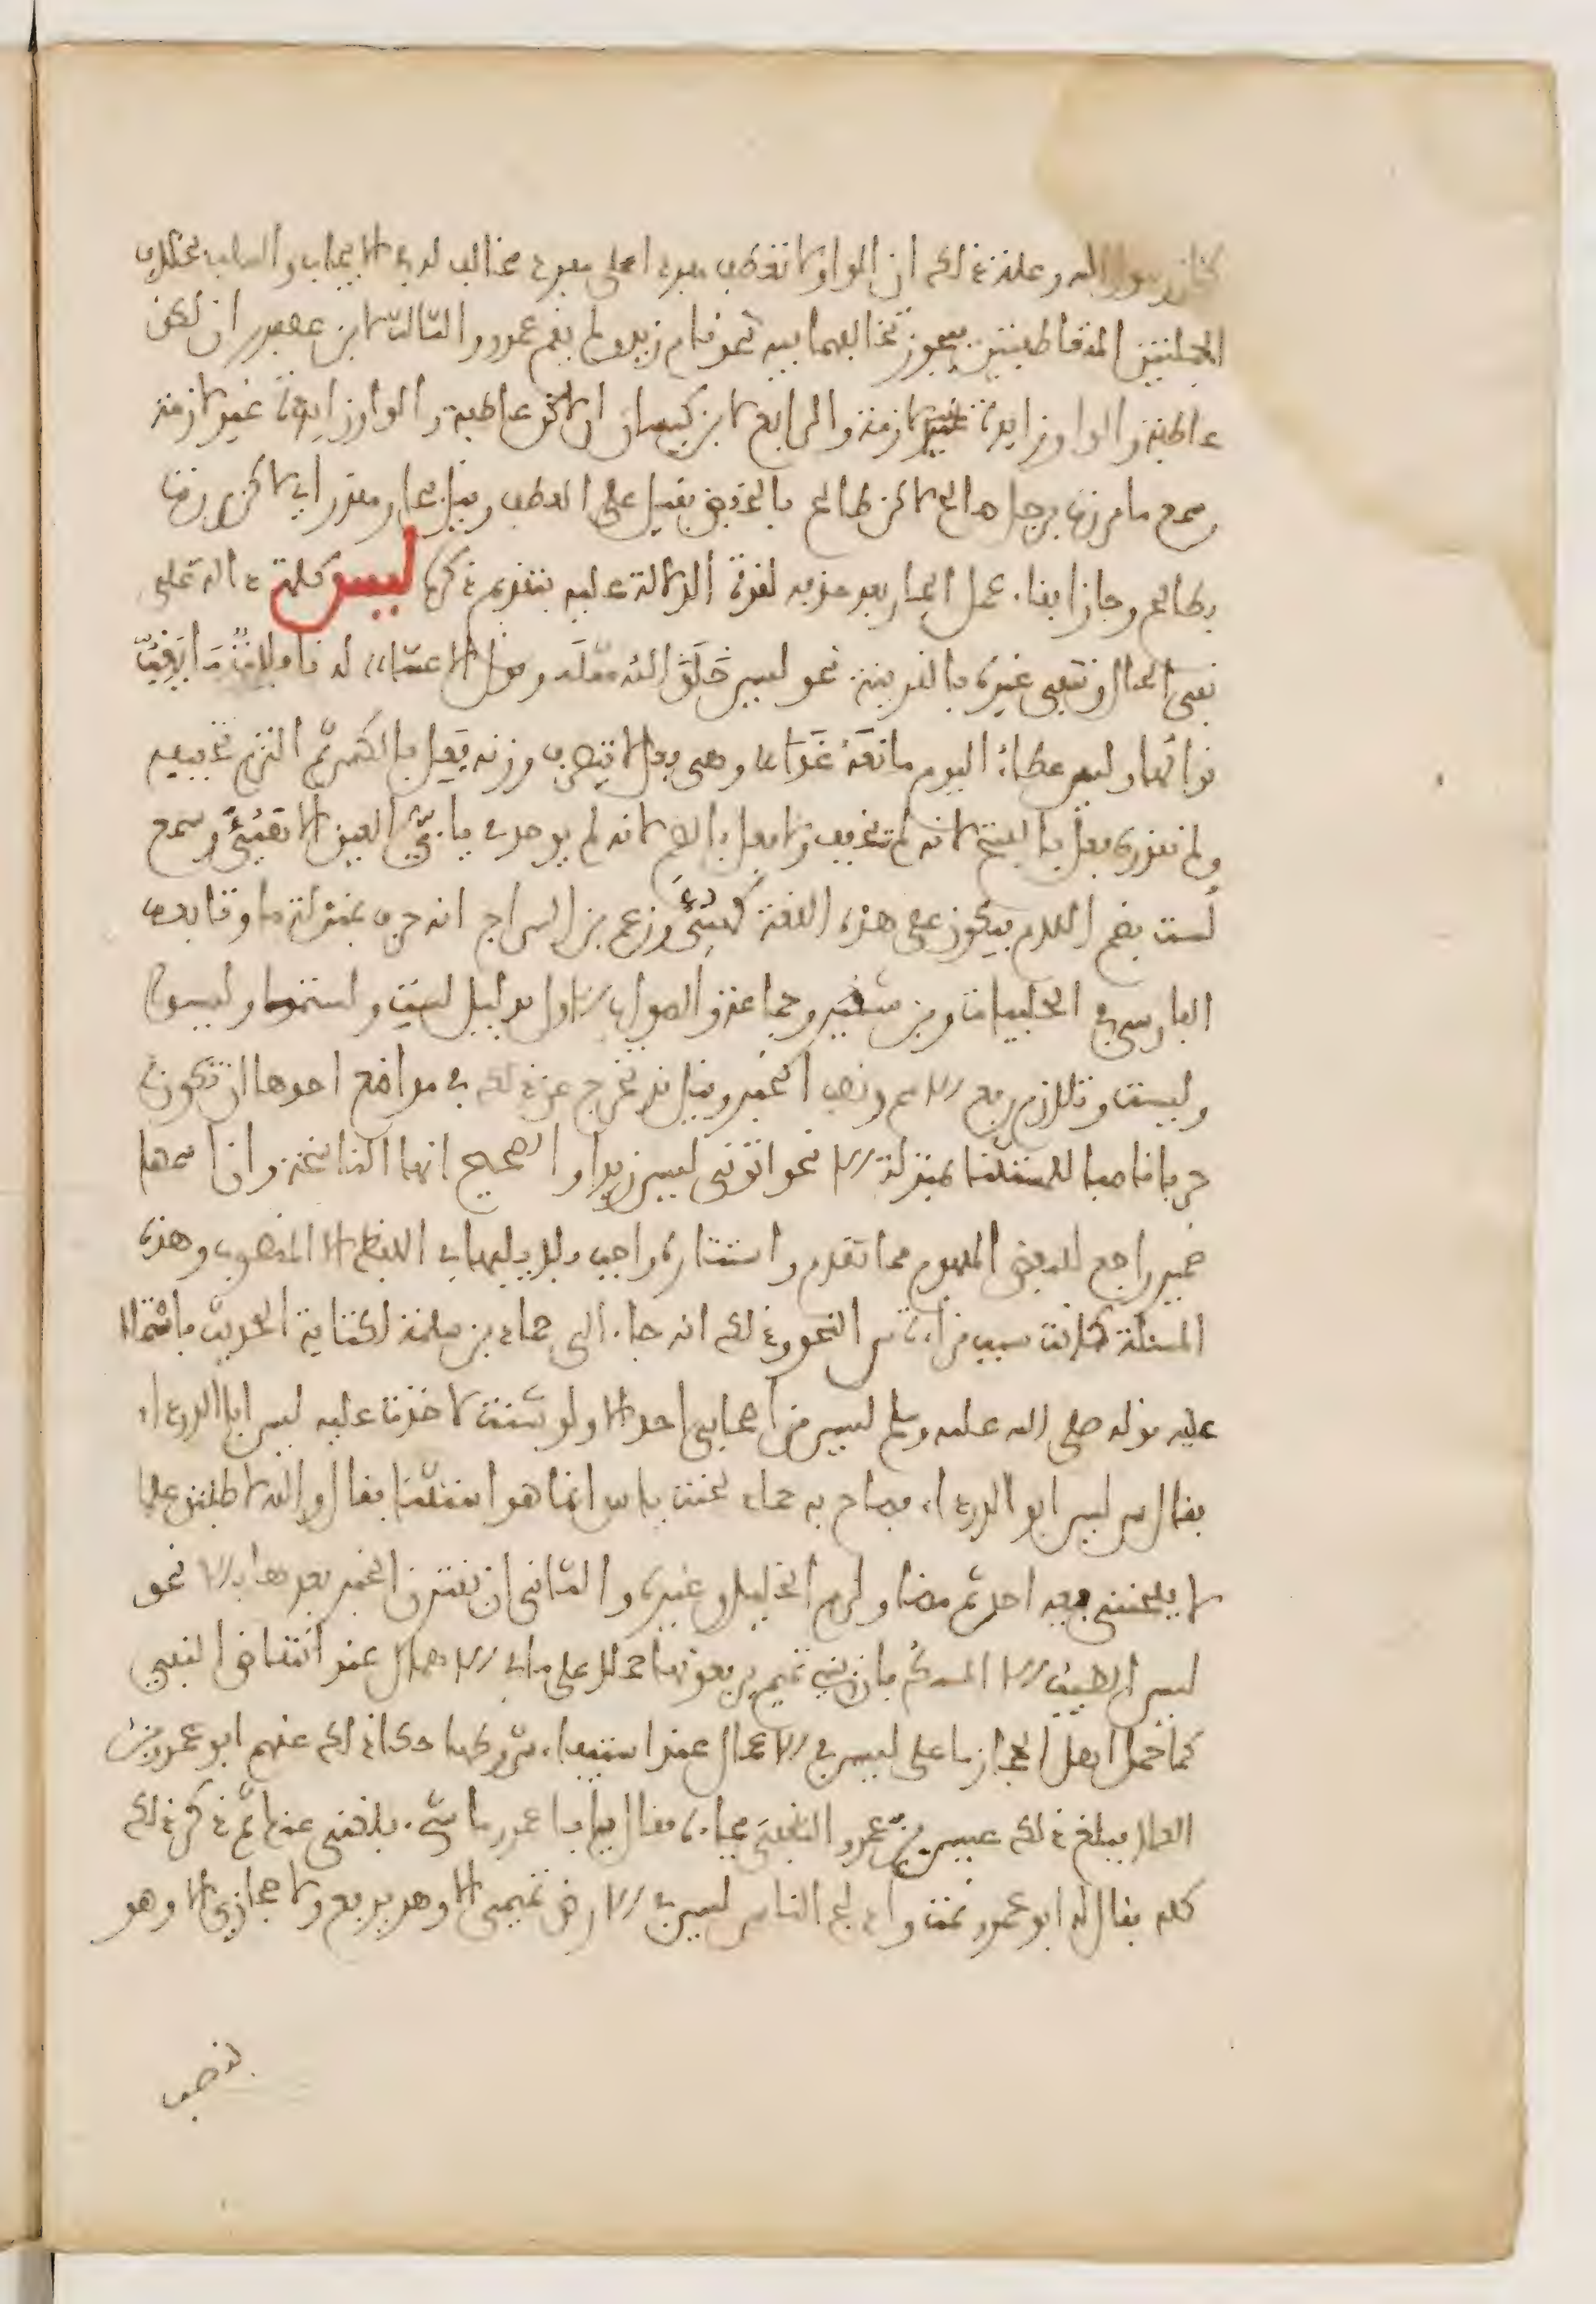 كان رسول الله وعلة ذلك ان الواو لا تعطف مفردا على مفرد مخالف له في الايجاب والسلب بخلاف
الجملتين المتعاطفتين فيجوز تخالفهما فيه نحو قام زيد ولم يقم عمرو والثالث لابن عصفور ان لكن
عاطفة والواو زايدة غير لازمة والرابع لابن كيسان ان لكن عاطفة والواو زايدة غير لازمة
وسمع ما مررت برجل صالح لاكن طالح بالخفض فقيل على العطف وقيل بجار مقدر اي لاكن مررت
بطالح وجاز ابقاء عمل الجار بعد حذفه لقوة الدلالة عليه بتقدم ذكره ليس كلمة دالة على
نفي الحال وتنفي غيره بالقرينة نحو ليس خلق الله مثله وقول الاعشى له نافلات ما يغب
نوالها وليس عطاء اليوم مانعه غدا وهي فعل لا يتصرف وزنه فعل بالكسر ثم التزم تخفيفه
ولم نقدره فعل بالفتح لانه لم يخفف ولا فعل بالضم لانه لم يوجد في يائي العين الا في هيؤ وسمع
لست بضم اللام فيكون على هذه اللغة كهيؤ وزعم بن السراج انه حرف بمنزلة ما وتابعه
الفارسي في الحلبيات وبن شقير وجماعة والصواب الاول بدليل لست ولستما وليسوا
وليست وتلازم رفع الاسم ونصب الخبر وقيل قد تخرج عن ذلك في مواضع احدها ان تكون
حرفا ناصبا للمستثنى بمنزلة الا نحو اتوني ليس زيدا والصحيح انها الناسخة وان اسمها
ضمير راجع للبعض المفهوم مما تقدم واستتاره واجب فلا يليها في اللفظ الا المنصوب وهذه
المسئلة كانت سبب قراءة س النحو وذلك انه جاء الى حماد بن سلمة لكتابة الحديث فاستملا
عليه قوله صلى الله عليه وسلم ليس من اصحابي احد الا ولو شئت لاخذت عليه ليس ابا الدرداء
فقال س ليس ابو الدرداء فصاح به حماد لحنت ياس انما هو استثنا فقال والله لاطلبن علما
لا يلحنني فيه احد ثم مضا ولزم الخليل وغيره والثاني ان يقترن الخبر بعدها بالا نحو
ليس الطيب الا المسك فان بني تميم يرفعونه حملا على ما في الاهمال عند انتقاض النفي
كما حمل اهل الحجاز ما على ليس في الاعمال عند استيفاء شروطها حكا ذلك عنهم ابو عمرو بن
العلا فبلغ ذلك عيسى بن عمرو الثقفي فجاءه فقال يا با عمرو ما شيء بلغني عنك ثم ذكر ذلك
كله فقال له ابو عمرو نمت وادلج الناس ليس في الارض تميمي الا وهو يرفع ولا حجازي الا وهو
ينصب